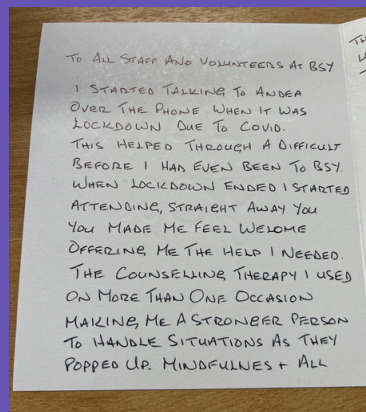 To All Staff And Volunteers At BSY
I Started Talking To Andea
Over The Phone When It Was
Lockdown Due To Covid.
This Helped Through A Difficult
Before I Had Even Been To BSY.
When Lockdown Ended I Started
Attending, Straight Away You
You Made Me Feel Welome
Offering Me The Help I Needed.
The Counselling Therapy I Used
On More Than One Occasion
Making Me A Stronger Person
To Handle Situations As They
Popped Up. Mindfulnes + All